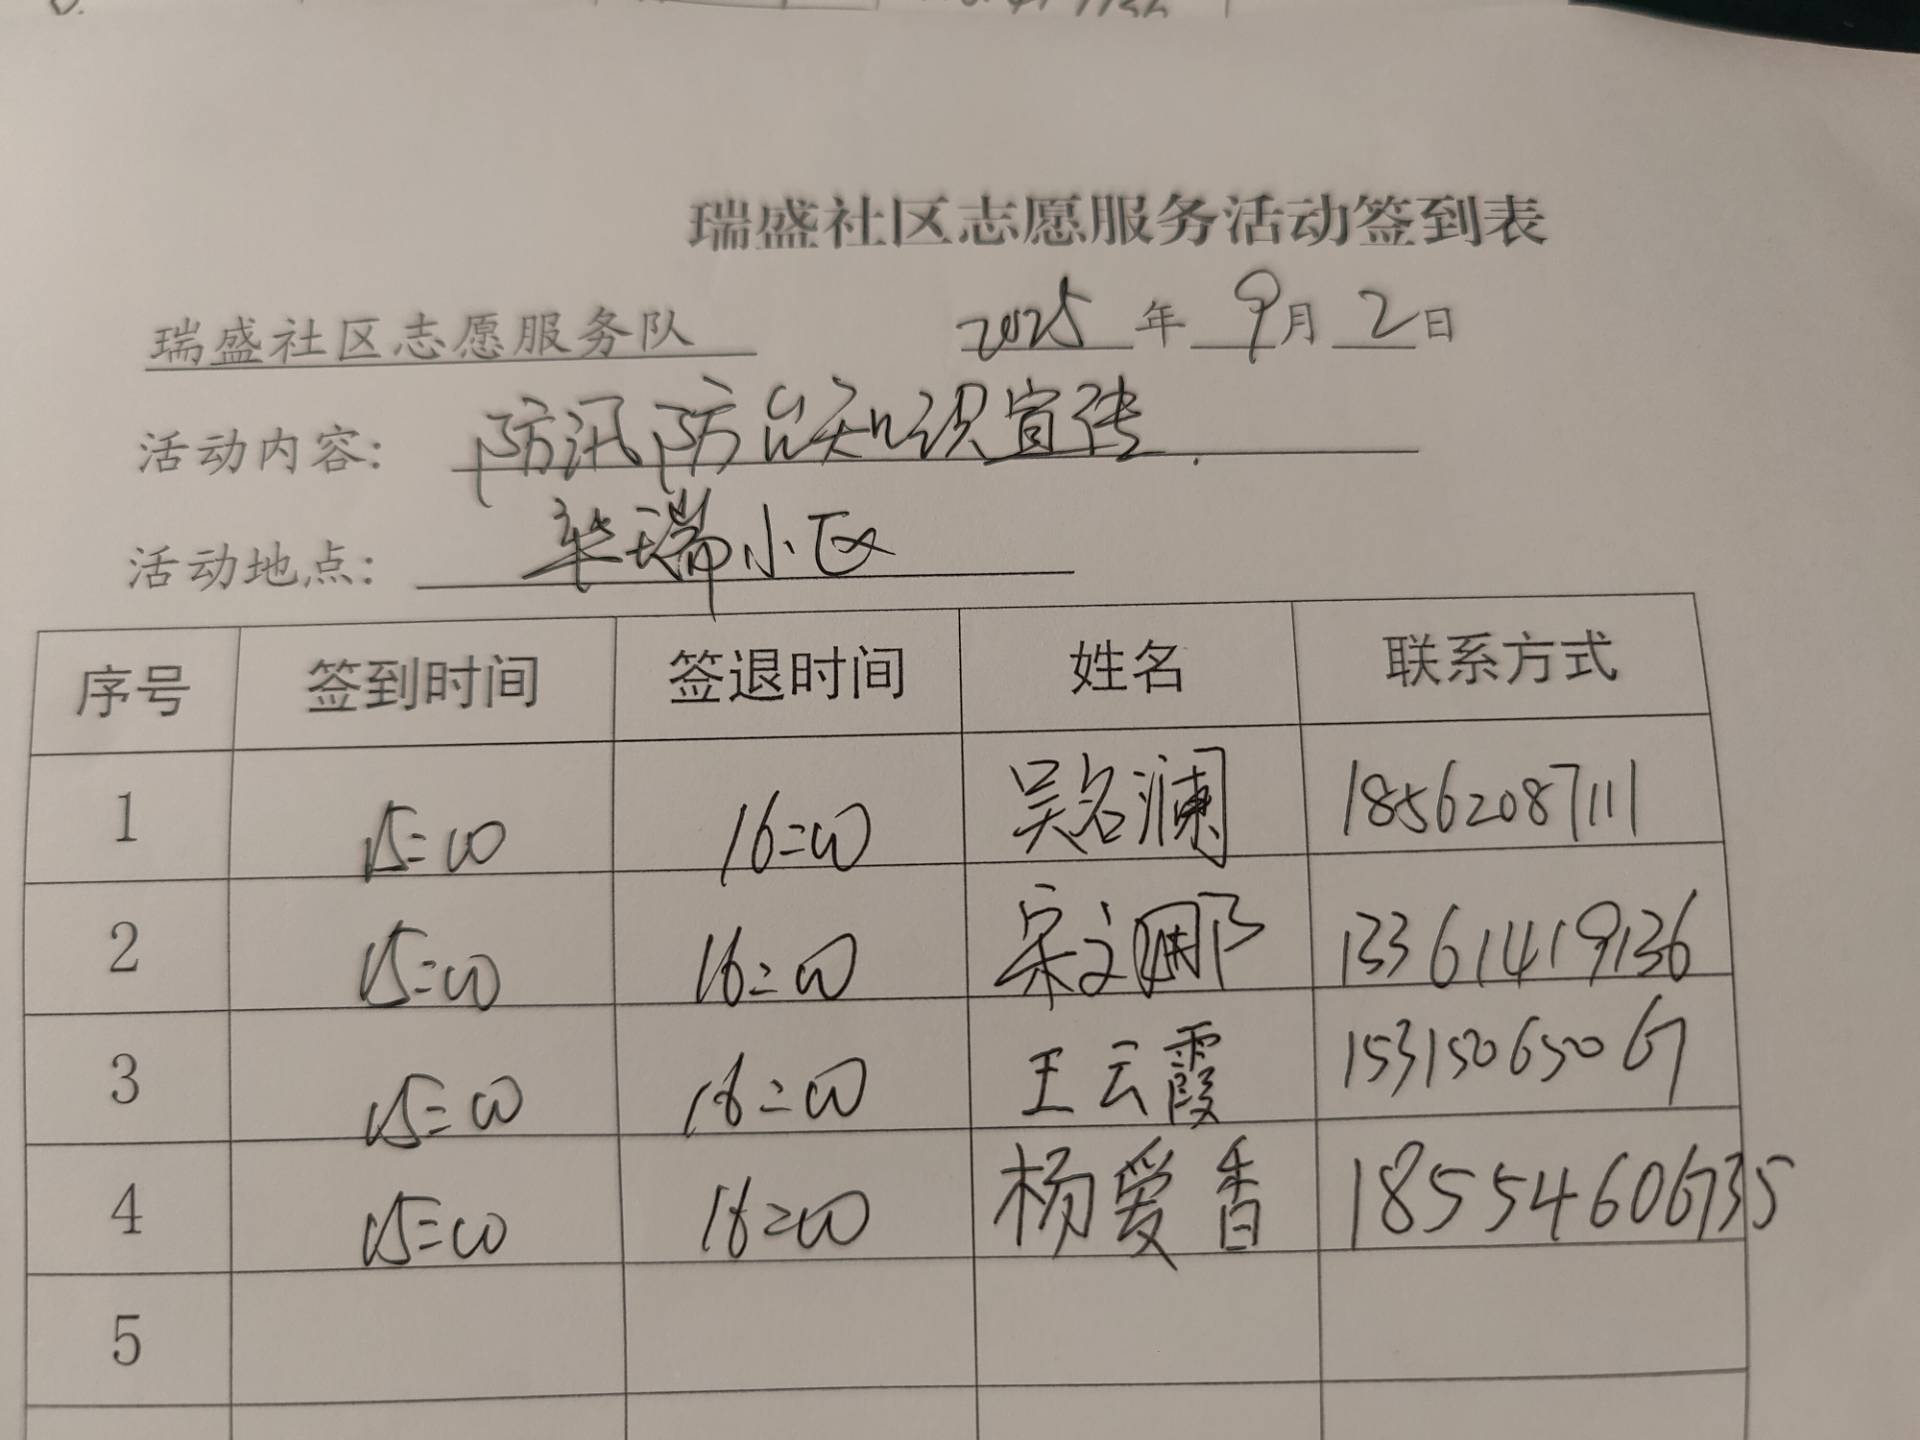 瑞盛社区志愿服务活动签到表
瑞盛社区志愿服务队 2025年9月2日
活动内容: 防汛防台知识宣传.
活动地点: 华瑞小区
序号 签到时间 签退时间 姓名 联系方式
1 15:00 16:00 吴名澜 18562087111
2 15:00 16:00 宋文娜 13361419136
3 15:00 16:00 王云霞 15315065067
4 15:00 16:00 杨爱香 18554606735
5